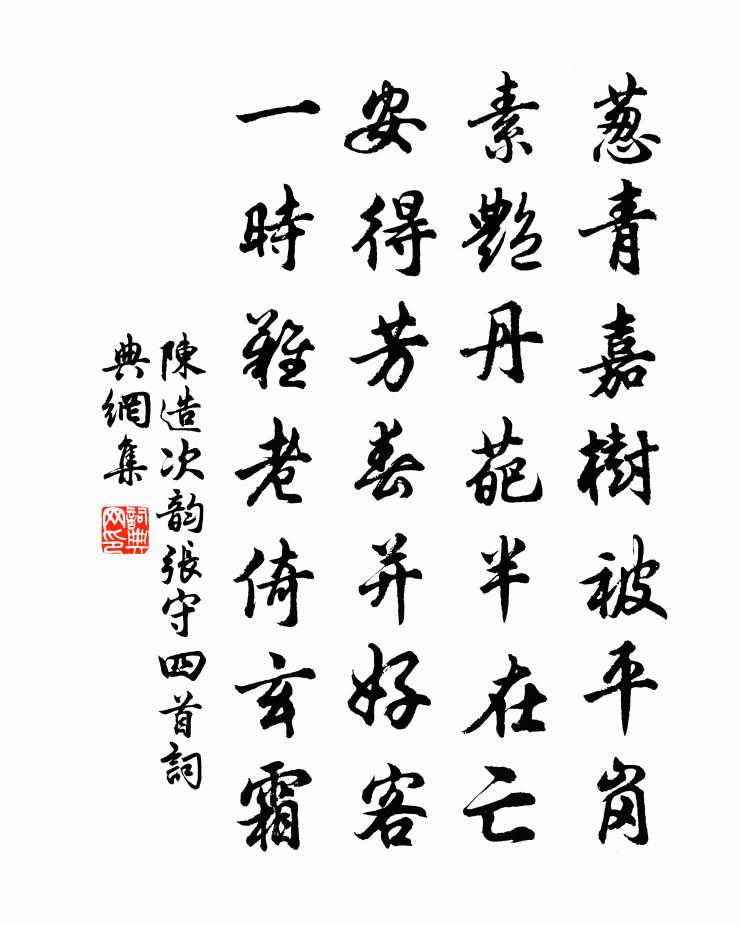 葱青嘉樹被平崗
素艷丹葩半在亡
安得芳春并好客
一時難老倚玄霜
陳造次韵張守四首詞
典網集
詞典网印